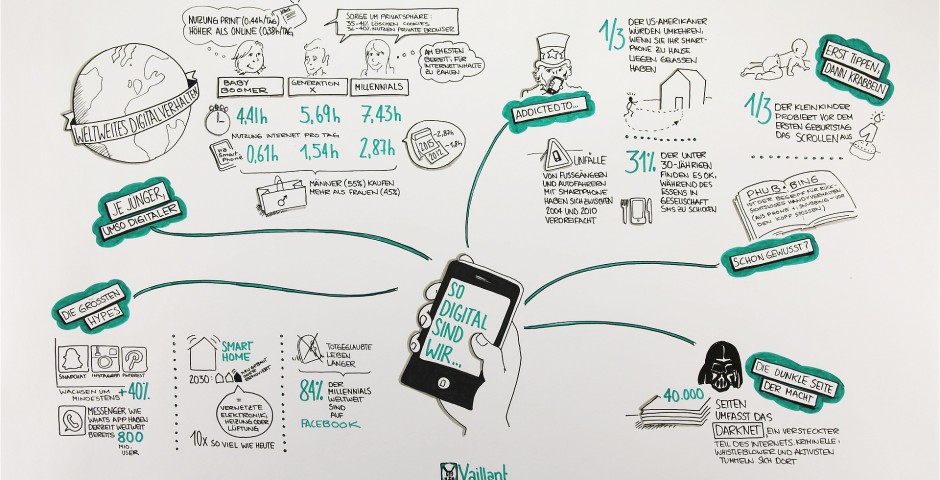 WELTWEITES DIGITALVERHALTEN
NUTZUNG PRINT (0,44h/TAG)
HÖHER ALS ONLINE (0,38h/TAG
SORGE UM PRIVATSPHÄRE:
35-40% LÖSCHEN COOKIES
36-40% NUTZEN PRIVATE BROWSER
AM EHESTEN
BEREIT, FÜR
INTERNETINHALTE
ZU ZAHLEN
BABY
BOOMER
GENERATION
X
MILLENNIALS
4,41h 5,69h 7,43h
NUTZUNG INTERNET PRO TAG
0,61h 1,54h 2,87h
2015 - 2,87h
2012
MÄNNER (55%) KAUFEN
MEHR ALS FRAUEN (45%)
JE JÜNGER,
UMSO DIGITALER
ADDICTED TO...
1/3
DER US-AMERIKANER
WÜRDEN UMKEHREN,
WENN SIE IHR SMART-
PHONE ZU HAUSE
LIEGEN GELASSEN
HABEN
UNFÄLLE
VON FUSSGÄNGERN
UND AUTOFAHREREN
MIT SMARTPHONE
HABEN SICH ZWISCHEN
2004 UND 2010
VERDREIFACHT
31%
DER UNTER
30-JÄHRIGEN
FINDEN ES OK,
WÄHREND DES
ESSENS IN
GESELLSCHAFT
SMS ZU SCHICKEN
ERST TIPPEN,
DANN KRABBELN
1/3
DER KLEINKINDER
PROBIERT VOR DEM
ERSTEN GEBURTSTAG
DAS SCROLLEN AUS
PHUB·BING
IST DER BEGRIFF FÜR RÜCK-
SICHTSLOSES HANDYVERHALTEN
(AUS PHONE + SNUBBING = VOR
DEN KOPF STOSSEN)
SCHON GEWUSST?
SO
DIGITAL
SIND
WIR...
DIE GRÖSSTEN
HYPES
SNAPCHAT INSTAGRAM PINTEREST
WACHSEN UM
MINDESTENS +40%
MESSENGER WIE
WHATS APP HABEN
DERZEIT WELTWEIT
BEREITS 800
MIO.
USER
SMART
HOME
2030:
VERNETZTE
ELEKTRONIK,
HEIZUNG ODER
LÜFTUNG
10x SO VIEL WIE HEUTE
TOTGEGLAUBTE
LEBEN
LÄNGER
84%
DER
MILLENNIALS
WELTWEIT
SIND
AUF
FACEBOOK
DIE DUNKLE SEITE
DER MACHT
40.000
SEITEN
UMFASST DAS
DARKNET, EIN VERSTECKTER
TEIL DES INTERNETS. KRIMINELLE,
WHISTLEBLOWER UND AKTIVISTEN
TUMMELN SICH DORT
Vaillant